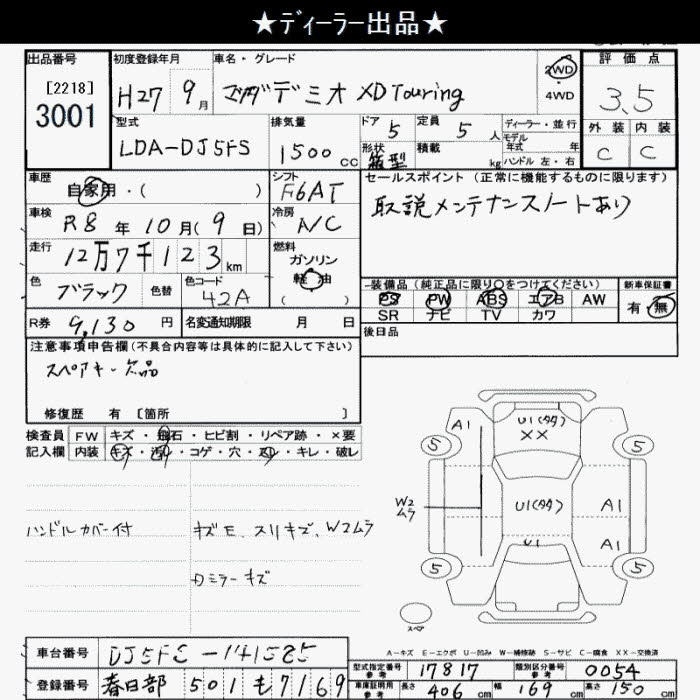 ★ディーラー出品★
出品番号 初度登録年月 車名・グレード 2WD 評価点
[2218] 3001 H27 9月 マツダデミオ XD Touring 4WD 3.5
型式 排気量 ドア 5 定員 5人 ディーラー・並行 外装 内装
モデル年式 年
LDA-DJ5FS 1500cc 形状 箱型 積載 kg ハンドル 左・右 C C
車歴 シフト セールスポイント (正常に機能するものに限ります)
自家用・( ) F6AT 取説メンテナンスノートあり
車検 R8年10月(9日) 冷房 A/C
走行 12万7千123km 燃料 ガソリン
軽油
( )
色 ブラック 色替 色コード 42A 装備品(純正品に限り○をつけてください) 新車保証書
PS PW ABS エアB AW 有・無
SR ナビ TV カワ
R券 9,130円 名変通知期限 月 日 後日品
注意事項申告欄(不具合内容等は具体的に記入して下さい)
スペアキー欠品
修復歴 有 [箇所 ]
検査員 FW キズ・飛石・ヒビ割・リペア跡・×要
記入欄 内装 キズ・汚れ・コゲ・穴・スレ・キレ・破レ
ハンドルカバー付 キズE、スリキズ、W2ムラ
カミラーキズ
A1 U1(タタ)
XX
5 5
W2
ムラ U1(タタ) A1
U1 A1
5 5
スペア
A-キズ E-エクボ U-凹み W-補修跡 S-サビ C-腐食 XX-交換済
車台番号 DJ5FS-141525 型式指定番号 参考 17817 類別区分番号 参考 0054
登録番号 春日部 501 も 7169 車庫証明用 参考 長さ 406cm 幅 169cm 高さ 150cm